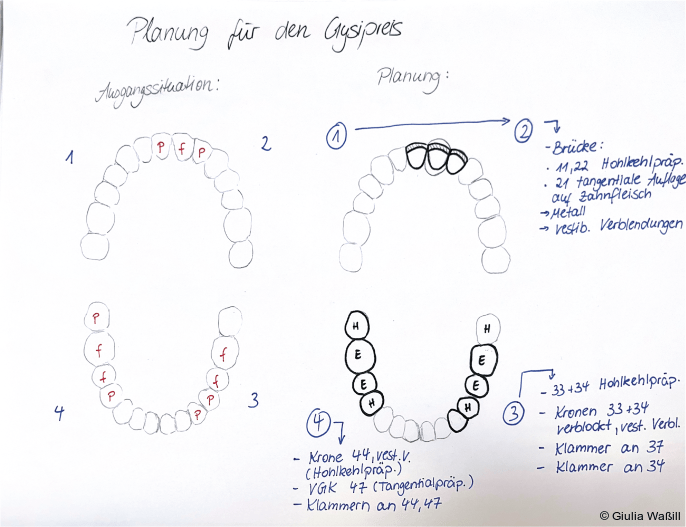 Planung für den Gysipreis
Ausgangssituation:
Planung:
1
P f P
2
P
f
f
P
f
f
P
P
4
3
1
2
- Brücke:
. 11,22 Hohlkehlpräp.
. 21 tangentiale Auflage
auf Zahnfleisch
→ Metall
→ vestib. Verblendungen
H
E
E
H
H
E
E
H
3
- 33+34 Hohlkehlpräp.
- Kronen 33+34
verblockt, vest. Verbl.
- Klammer an 37
- Klammer an 34
4
- Krone 44, vest. V.
(Hohlkehlpräp.)
- VGK 47 (Tangentialpräp.)
- Klammern an 44,47
© Giulia Waßill